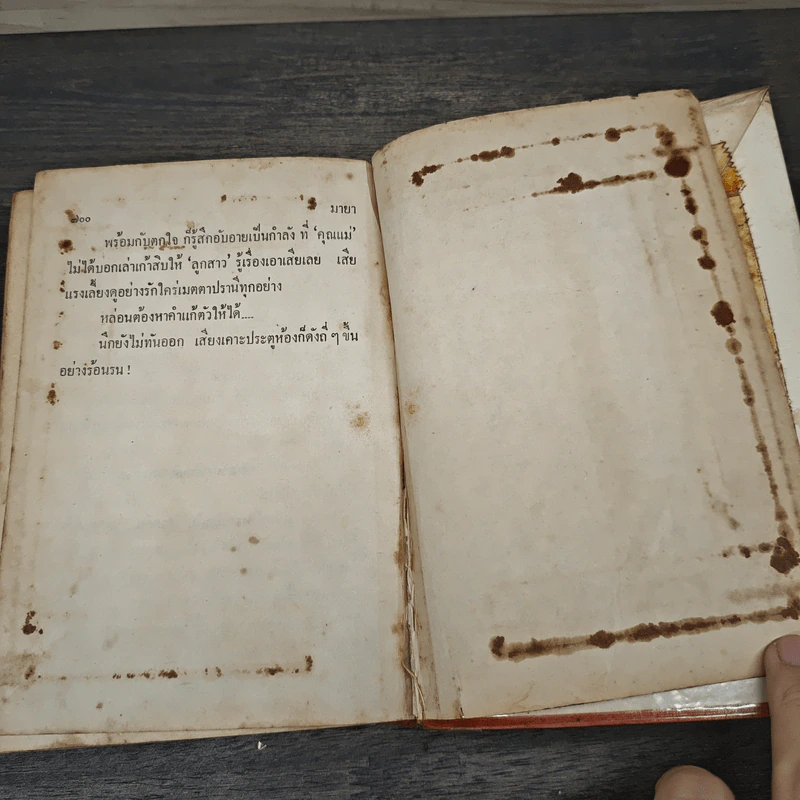 ๘๐๐ มายา
พร้อมกับตกใจ ก็รู้สึกอับอายเป็นกำลัง ที่ ‘คุณแม่’
ไม่ได้บอกเล่าเก้าสิบให้ ‘ลูกสาว’ รู้เรื่องเอาเสียเลย เสีย
แรงเลี้ยงดูอย่างรักใคร่เมตตาปรานีทุกอย่าง
หล่อนต้องหาคำแก้ตัวให้ได้....
นึกยังไม่ทันออก เสียงเคาะประตูห้องก็ดังถี่ ๆ ขึ้น
อย่างร้อนรน !